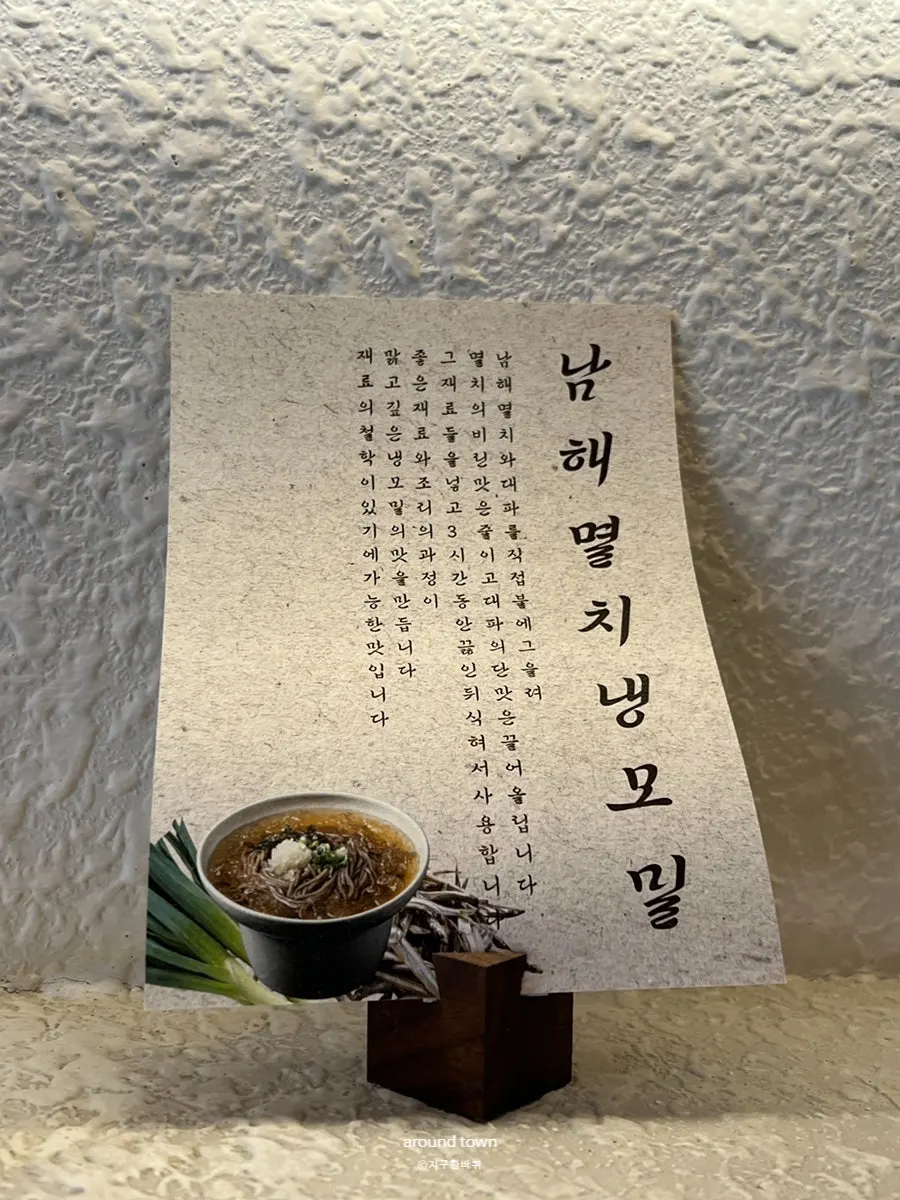 남해멸치냉모밀
남해멸치와대파를직접불에그을려
멸치의비린맛은줄이고대파의단맛은끌어올립니다
그재료들을넣고3시간동안끓인뒤식혀서사용합니다
좋은재료와조리의과정이
맑고깊은냉모밀의맛을만듭니다
재료의철학이있기에가능한맛입니다
around town